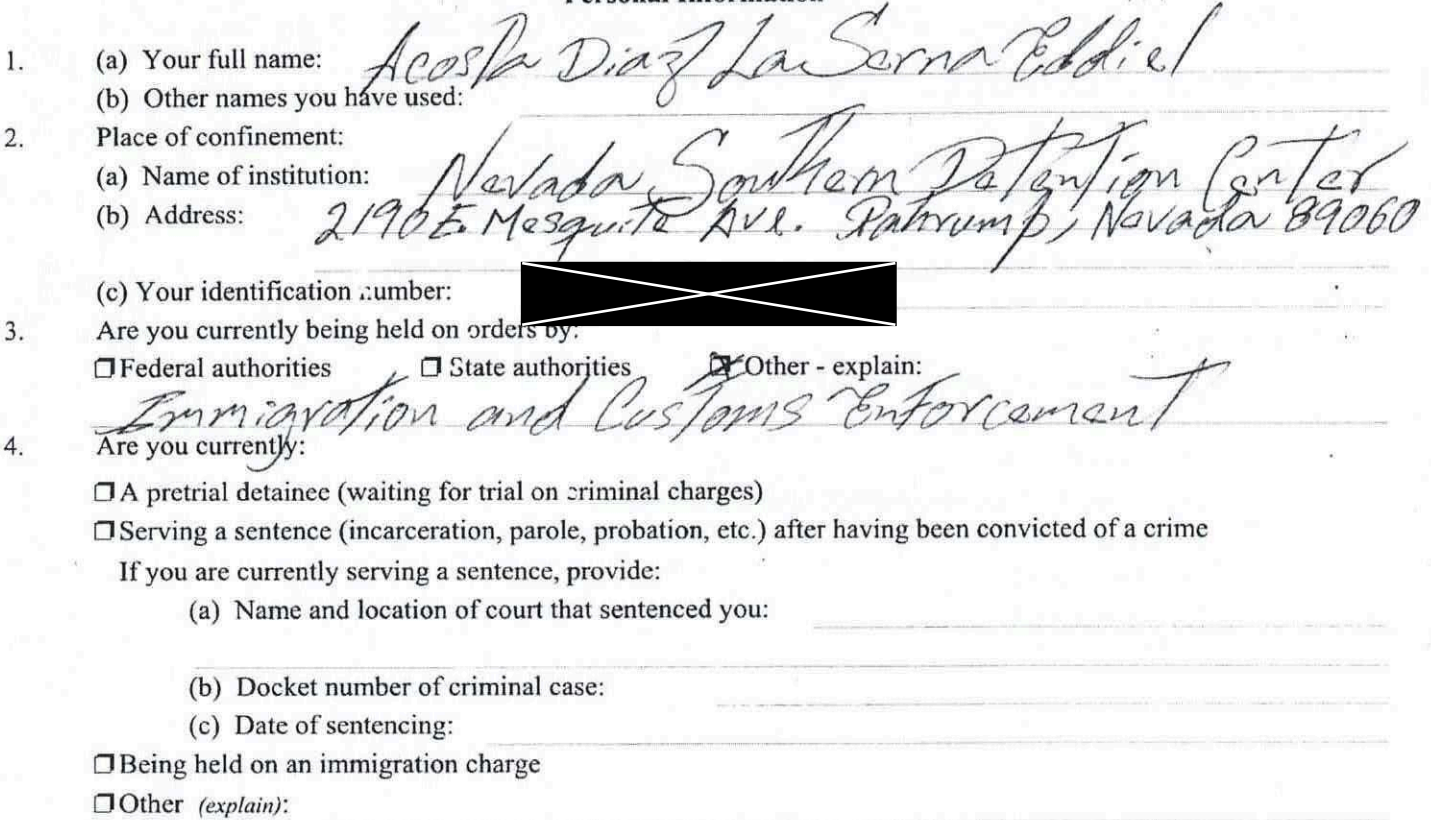 Personal Information
1. (a) Your full name: Acosta Diaz La Serna Eddiel
(b) Other names you have used:
2. Place of confinement:
(a) Name of institution: Nevada Southern Detention Center
(b) Address: 2190 E. Mesquite Ave. Pahrump, Nevada 89060
(c) Your identification number:
3. Are you currently being held on orders by:
☐ Federal authorities ☐ State authorities ☒ Other - explain:
Immigration and Customs Enforcement
4. Are you currently:
☐ A pretrial detainee (waiting for trial on criminal charges)
☐ Serving a sentence (incarceration, parole, probation, etc.) after having been convicted of a crime
If you are currently serving a sentence, provide:
(a) Name and location of court that sentenced you:
(b) Docket number of criminal case:
(c) Date of sentencing:
☐ Being held on an immigration charge
☐ Other (explain):